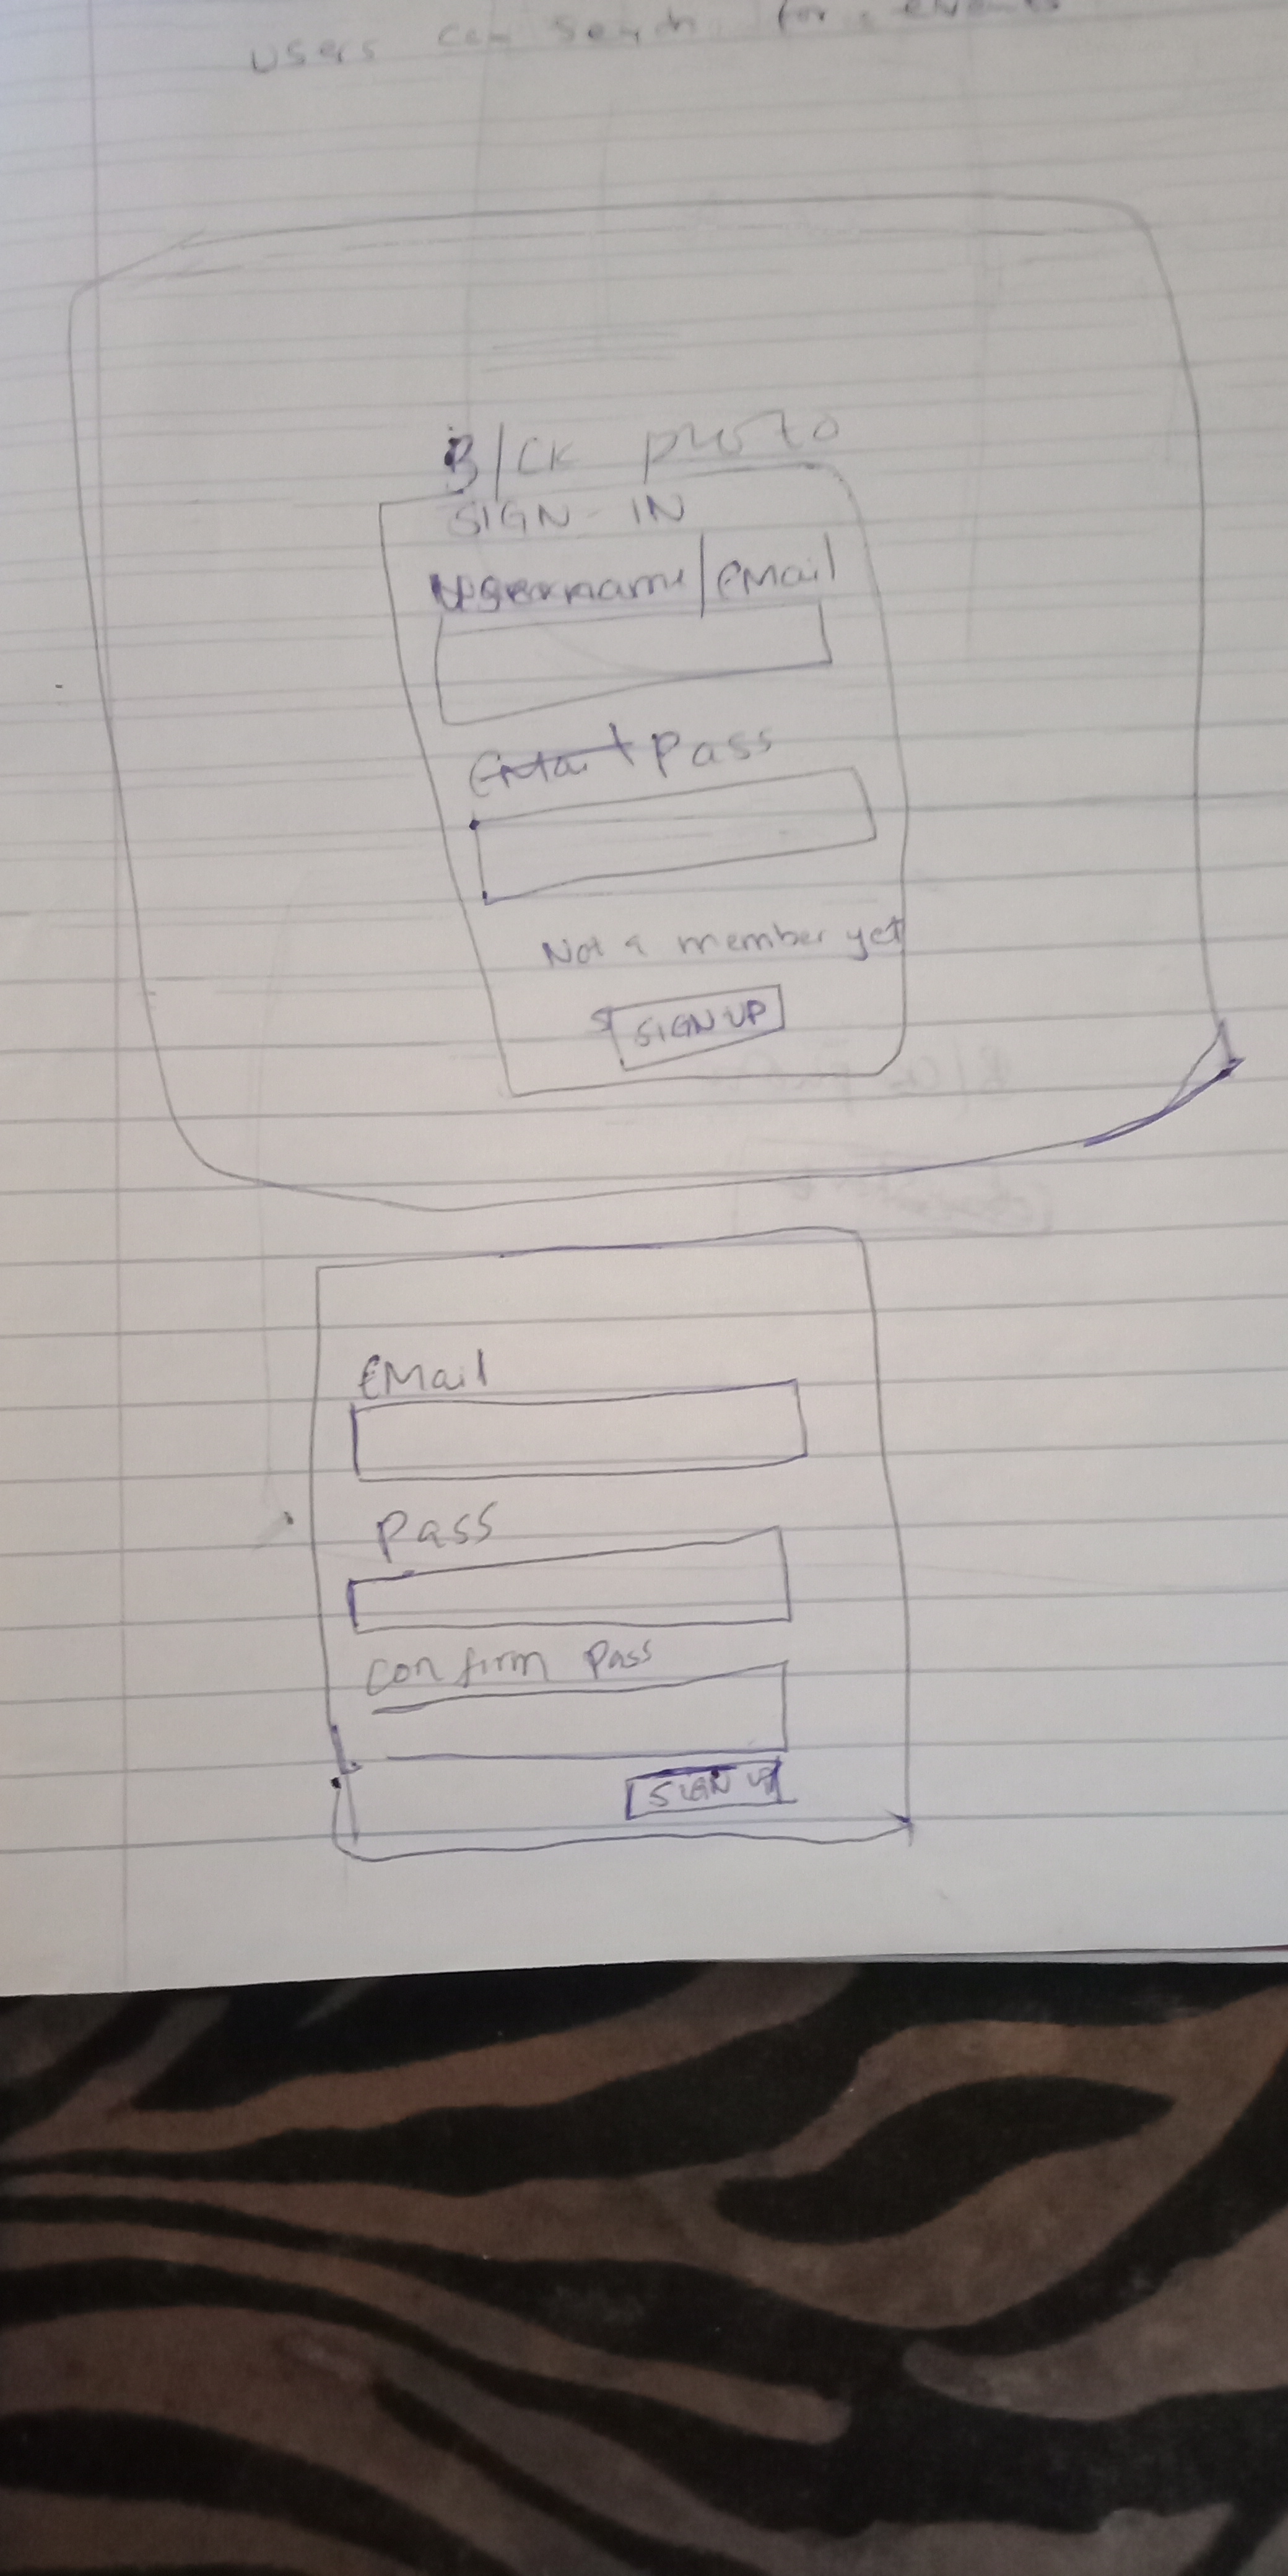 users can for events
B/CK photo
SIGN-IN
Username/EMail
EMail Pass
Not a member yet
SIGN UP
EMail
Pass
confirm Pass
SIGN UP